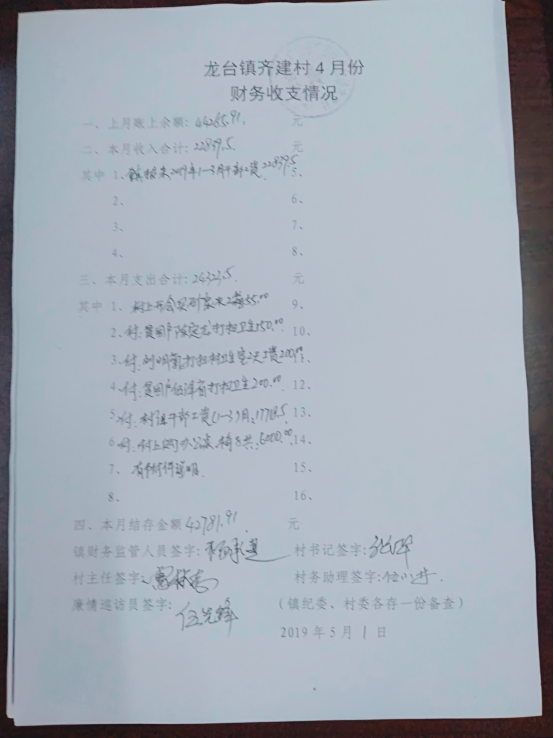 龙台镇齐建村4月份
财务收支情况
一、上月账上余额:44265.91. 元
二、本月收入合计:22839.5. 元
其中 1、镇拨来2019年1—3月干部工资22839.5 5、
2、 6、
3、 7、
4、 8、
三、本月支出合计:24323.5. 元
其中 1、村上开会买矿泉水2箱55.00 9、
2、付:贫困户 打扫卫生150.00 10、
3、付:刘明 打扫村卫生室2天工资200.00 11、
4、付:贫困户伍泽 打扫卫生200.00 12、
5、付:村组干部工资(1—3)月:17718.5 13、
6、付:村上购办公桌、椅 共:6000.00 14、
7、有附件说明. 15、
8、 16、
四、本月结存金额 42781.91. 元
镇财务监管人员签字: 村书记签字:
村主任签字: 村务助理签字:
廉情巡访员签字: (镇纪委、村委各存一份备查)
伍先锋
2019年5月1日